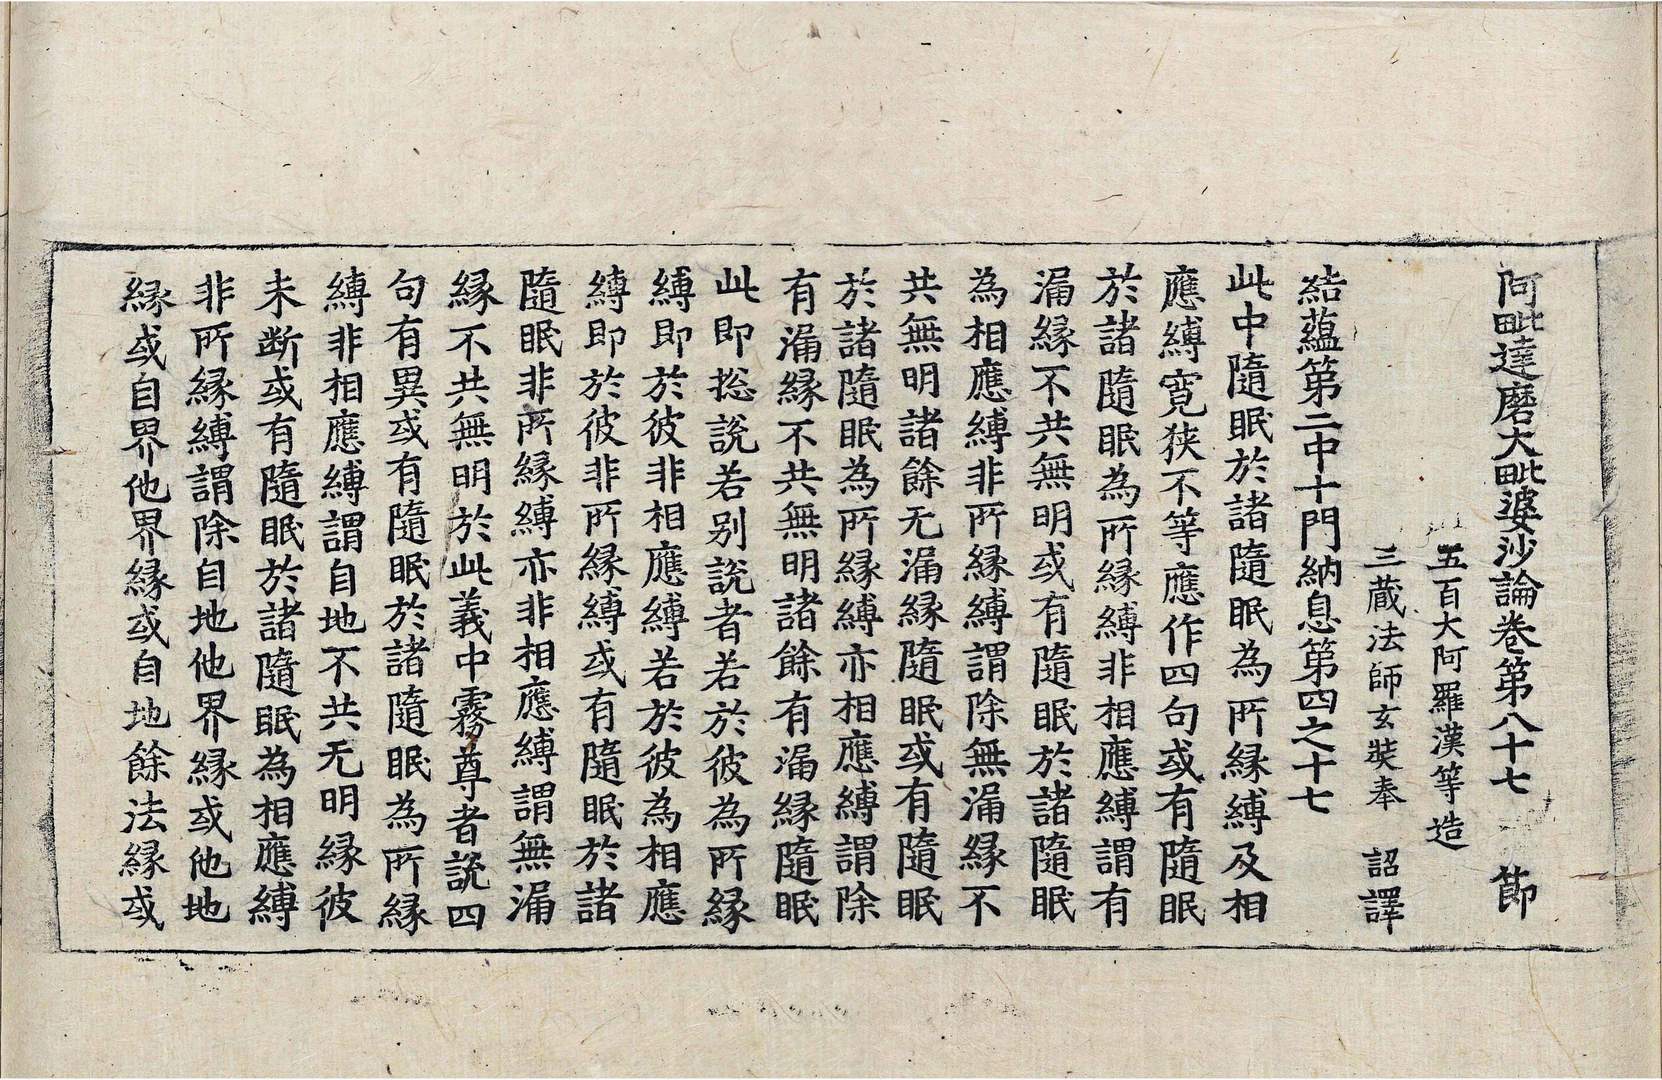 阿毗達磨大毗婆沙論卷第八十七　節
五百大阿羅漢等造
三藏法師玄奘奉　詔譯
結蘊第二中十門納息第四之十七
此中隨眠於諸隨眠為所縁縛及相
應縛寬狹不等應作四句或有隨眠
於諸隨眠為所縁縛非相應縛謂有
漏縁不共無明或有隨眠於諸隨眠
為相應縛非所縁縛謂除無漏縁不
共無明諸餘无漏縁隨眠或有隨眠
於諸隨眠為所縁縛亦相應縛謂除
有漏縁不共無明諸餘有漏縁隨眠
此即捴說若别說者若於彼為所縁
縛即於彼非相應縛若於彼為相應
縛即於彼非所縁縛或有隨眠於諸
隨眠非所縁縛亦非相應縛謂無漏
縁不共無明於此義中霧尊者說四
句有異或有隨眠於諸隨眠為所縁
縛非相應縛謂自地不共无明縁彼
未断或有隨眠於諸隨眠為相應縛
非所縁縛謂除自地他界縁或他地
縁或自界他界縁或自地餘法縁或